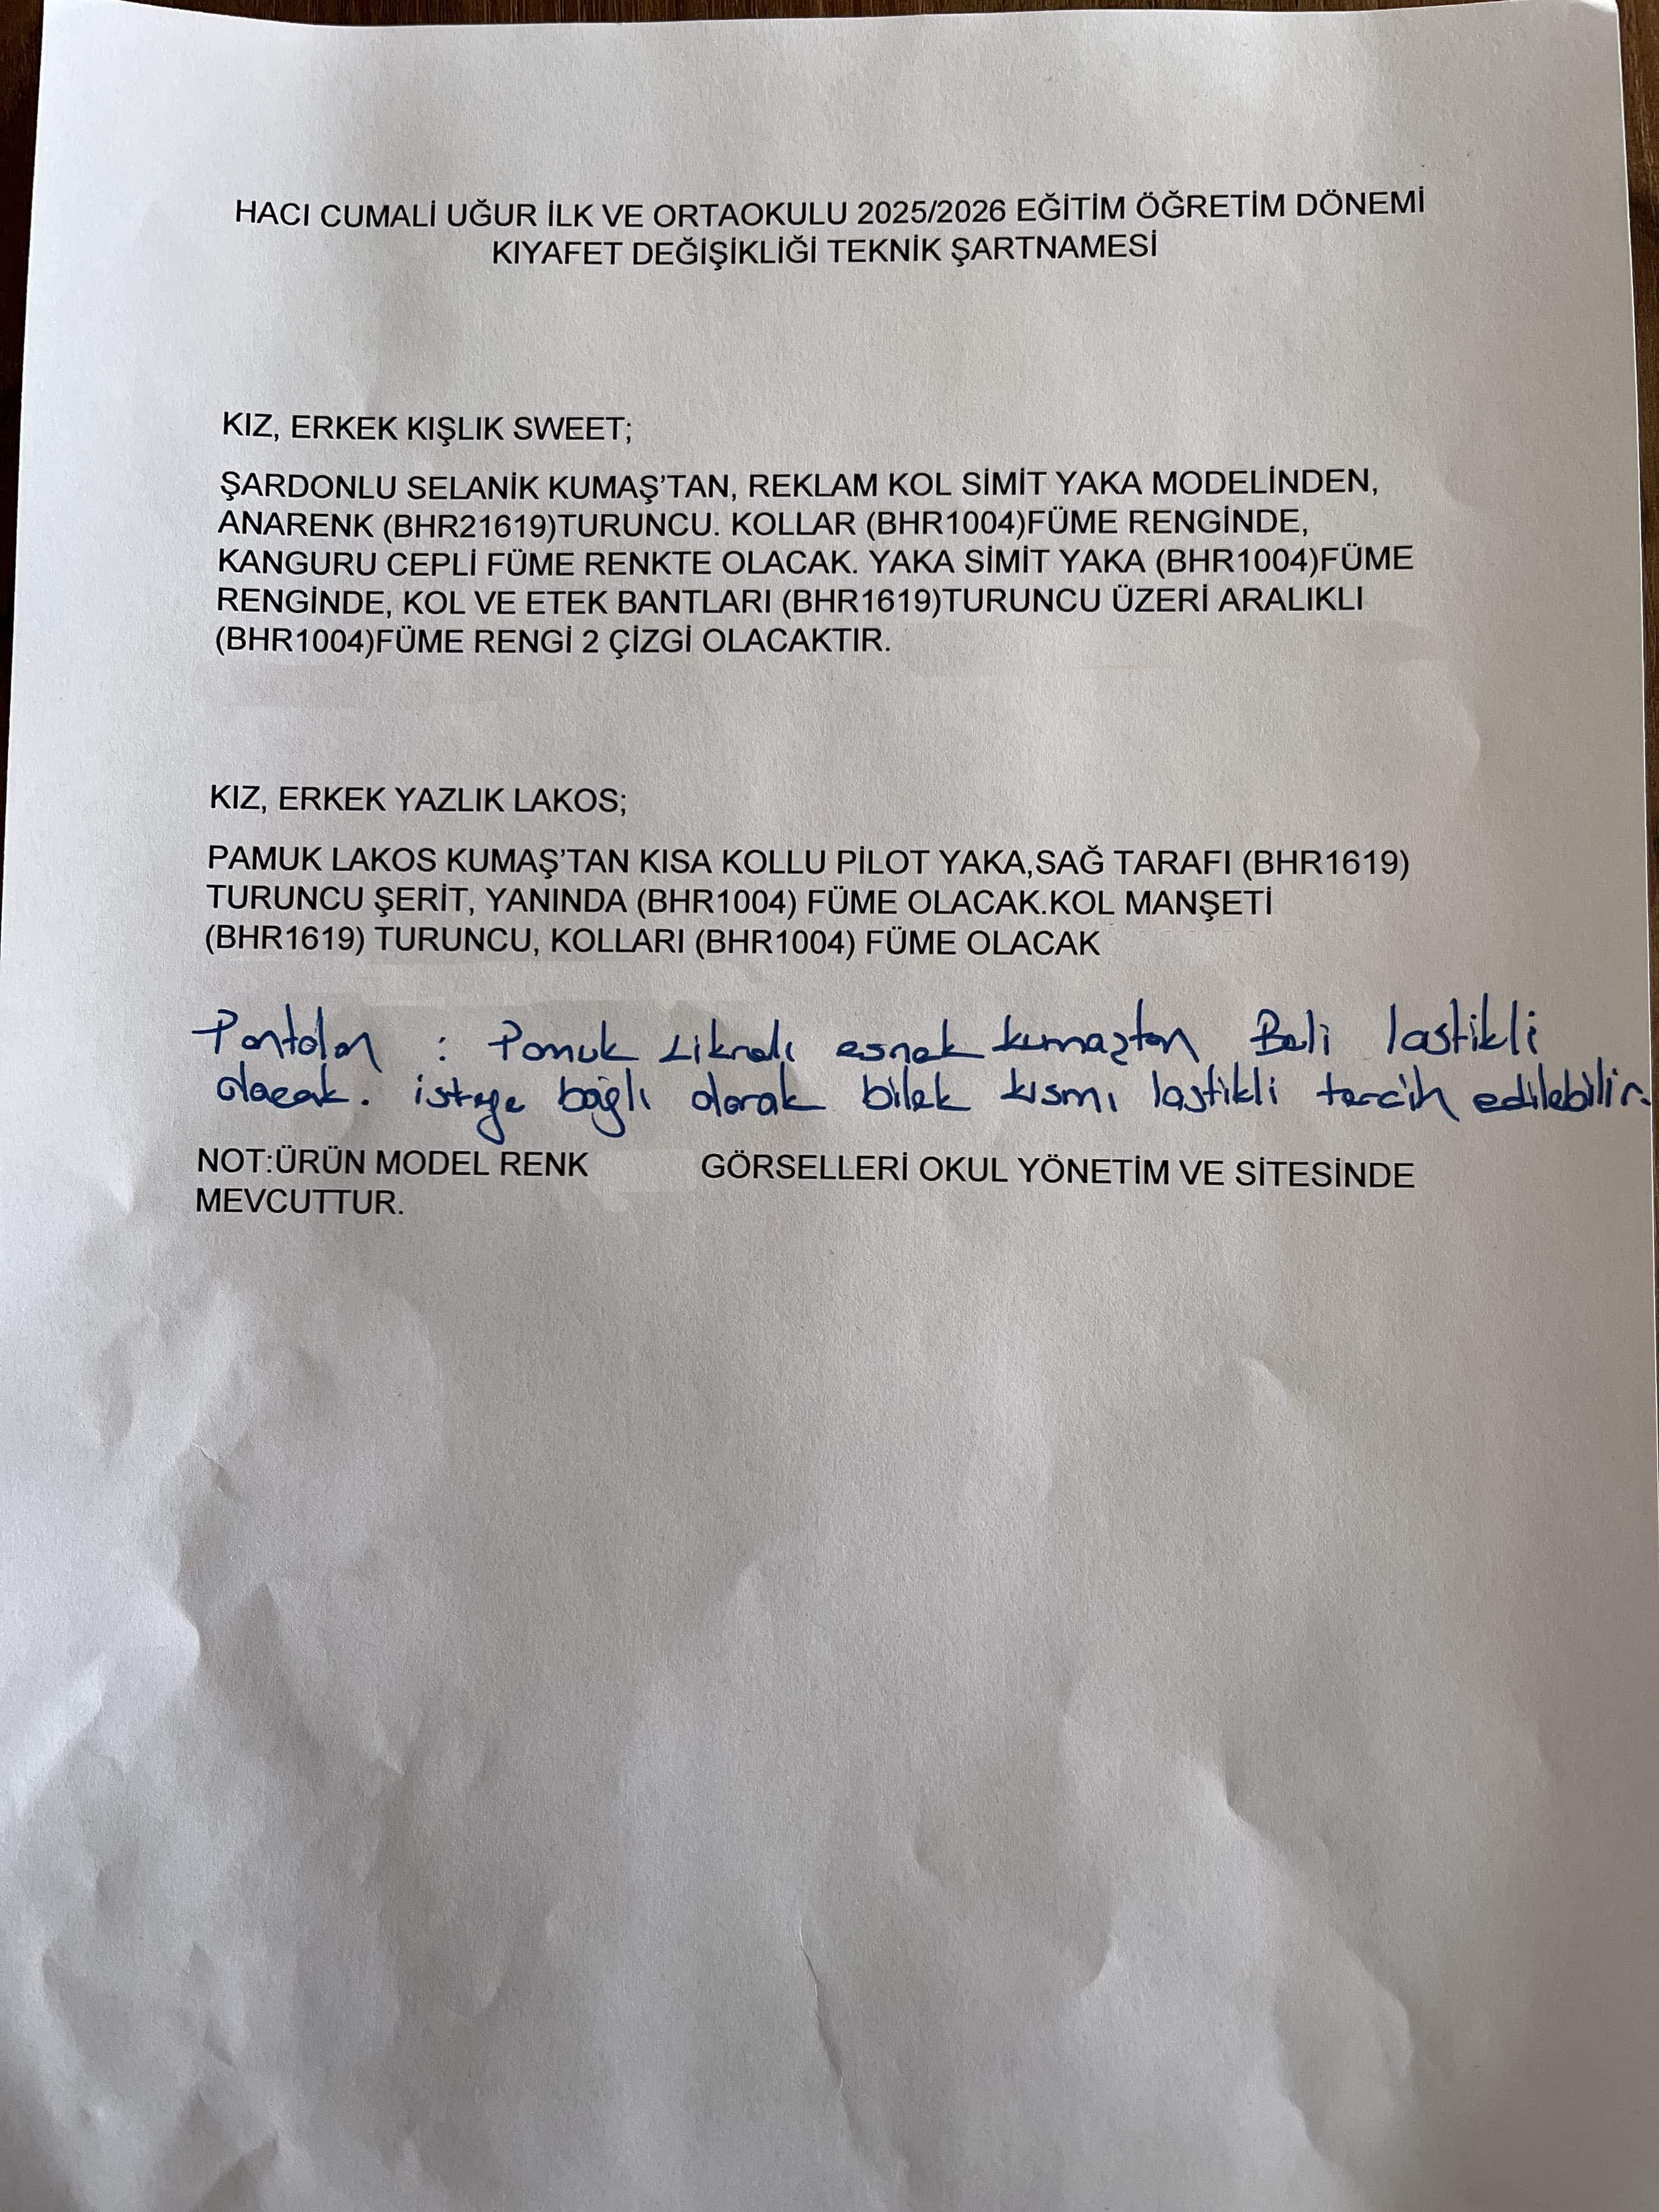 HACI CUMALİ UĞUR İLK VE ORTAOKULU 2025/2026 EĞİTİM ÖĞRETİM DÖNEMİ
KIYAFET DEĞİŞİKLİĞİ TEKNİK ŞARTNAMESİ
KIZ, ERKEK KIŞLIK SWEET;
ŞARDONLU SELANİK KUMAŞ'TAN, REKLAM KOL SİMİT YAKA MODELİNDEN,
ANARENK (BHR21619)TURUNCU. KOLLAR (BHR1004)FÜME RENGİNDE,
KANGURU CEPLİ FÜME RENKTE OLACAK. YAKA SİMİT YAKA (BHR1004)FÜME
RENGİNDE, KOL VE ETEK BANTLARI (BHR1619)TURUNCU ÜZERİ ARALIKLI
(BHR1004)FÜME RENGİ 2 ÇİZGİ OLACAKTIR.
KIZ, ERKEK YAZLIK LAKOS;
PAMUK LAKOS KUMAŞ'TAN KISA KOLLU PİLOT YAKA,SAĞ TARAFI (BHR1619)
TURUNCU ŞERİT, YANINDA (BHR1004) FÜME OLACAK.KOL MANŞETİ
(BHR1619) TURUNCU, KOLLARI (BHR1004) FÜME OLACAK
Pantolon : Pamuk Likralı esnek kumaştan Beli lastikli
olacak. isteğe bağlı olarak bilek kısmı lastikli tercih edilebilir.
NOT:ÜRÜN MODEL RENK GÖRSELLERİ OKUL YÖNETİM VE SİTESİNDE
MEVCUTTUR.